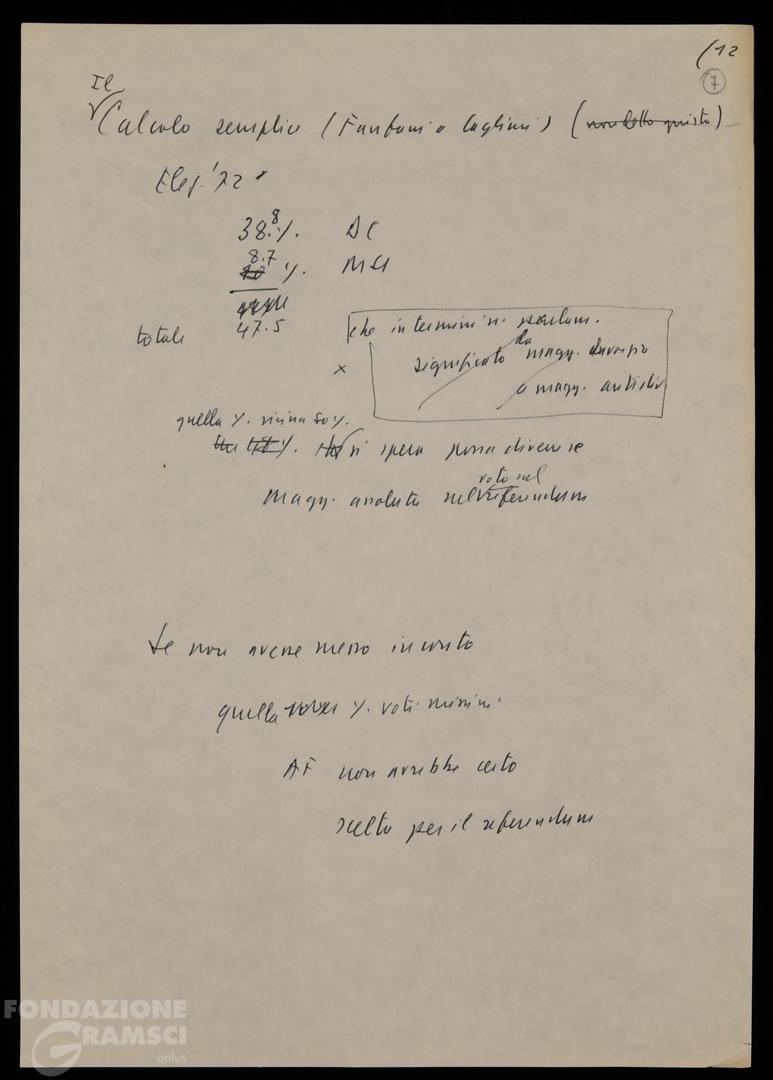 (12
7
Il
Calcolo semplice (Fanfani a Cagliari) (non detto questo)
Elez. '72
38.8 %. DC
8.7 %. MSI
totale 47.5
che in termini parlam.
significato da magg. divorzio
a magg. antidiv
x
quella %. vicina 50 %.
si spera possa divenire
magg. assoluta nel voto sul referendum
Se non avesse messo in conto
quella %. voti missini
AF non avrebbe certo
scelto per il referendum
FONDAZIONE
GRAMSCI
onlus